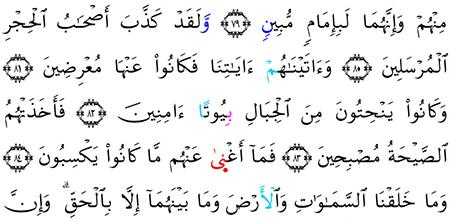 مِنْهُمْ وَإِنَّهُمَا لَبِإِمَامٍ مُّبِينٍ ﴿٧٩﴾ وَّلَقَدْ كَذَّبَ أَصْحَٰبُ ٱلْحِجْرِ
ٱلْمُرْسَلِينَ ﴿٨٠﴾ وَءَاتَيْنَٰهُمْ ءَايَٰتِنَا فَكَانُواْ عَنْهَا مُعْرِضِينَ ﴿٨١﴾
وَكَانُواْ يَنْحِتُونَ مِنَ ٱلْجِبَالِ بِيُوتًا ءَامِنِينَ ﴿٨٢﴾ فَأَخَذَتْهُمُ
ٱلصَّيْحَةُ مُصْبِحِينَ ﴿٨٣﴾ فَمَآ أَغْنَىٰ عَنْهُم مَّا كَانُواْ يَكْسِبُونَ ﴿٨٤﴾
وَمَا خَلَقْنَا ٱلسَّمَٰوَٰتِ وَٱلْأَرْضَ وَمَا بَيْنَهُمَآ إِلَّا بِٱلْحَقِّ ۗ وَإِنَّ